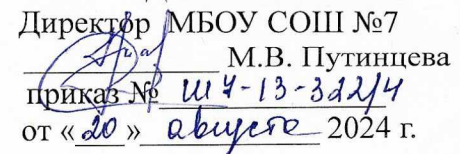 Директор МБОУ СОШ №7
М.В. Путинцева
приказ № Ш7-13-322/4
от «20» августа 2024 г.